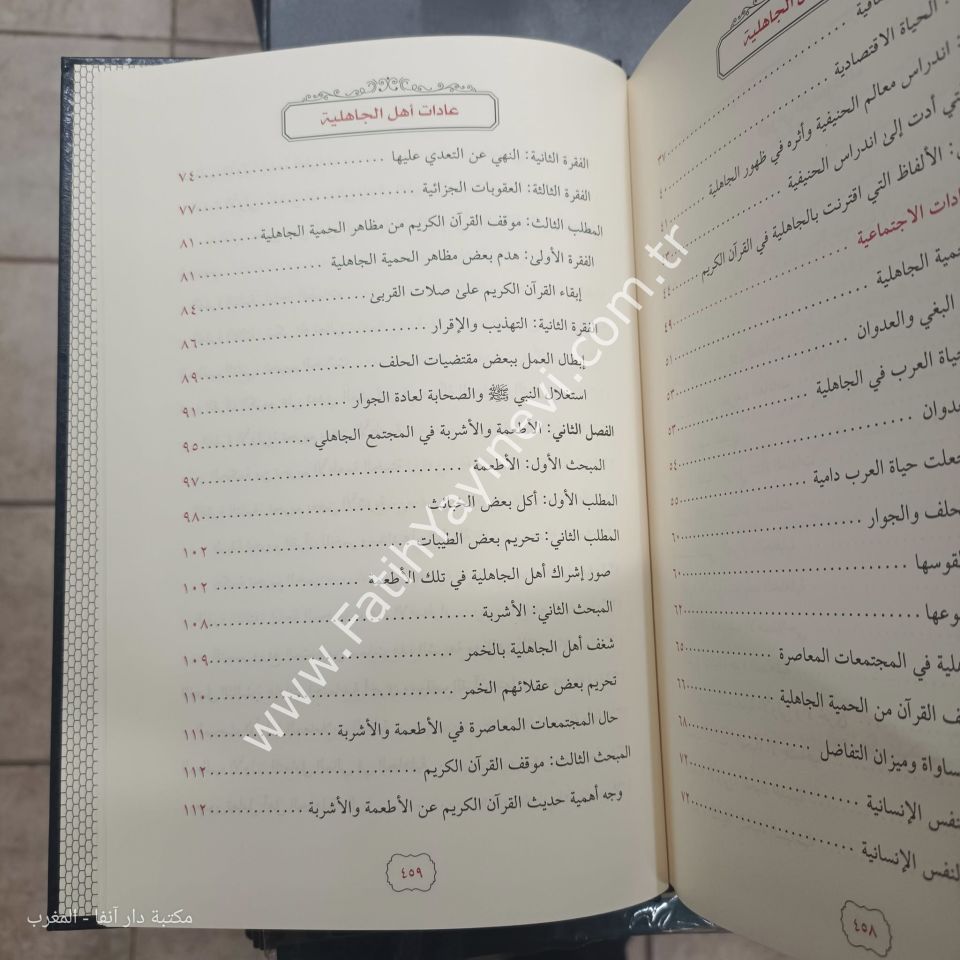 عادات أهل الجاهلية
الفقرة الثانية: النهي عن التعدي عليها ٧٤
الفقرة الثالثة: العقوبات الجزائية ٧٧
المطلب الثالث: موقف القرآن الكريم من مظاهر الحمية الجاهلية ٨١
الفقرة الأولىٰ: هدم بعض مظاهر الحمية الجاهلية ٨١
إبقاء القرآن الكريم علىٰ صلات القربىٰ ٨٤
الفقرة الثانية: التهذيب والإقرار ٨٦
إبطال العمل ببعض مقتضيات الحلف ٨٩
استعلال النبي ﷺ والصحابة لعادة الجوار ٩١
الفصل الثاني: الأطعمة والأشربة في المجتمع الجاهلي ٩٥
المبحث الأول: الأطعمة ٩٧
المطلب الأول: أكل بعض الخبائث ٩٨
المطلب الثاني: تحريم بعض الطيبات ١٠٢
صور إشراك أهل الجاهلية في تلك الأطعمة ١٠٢
المبحث الثاني: الأشربة ١٠٨
شغف أهل الجاهلية بالخمر ١٠٩
تحريم بعض عقلائهم الخمر ١١٠
حال المجتمعات المعاصرة في الأطعمة والأشربة ١١١
المبحث الثالث: موقف القرآن الكريم ١١٢
وجه أهمية حديث القرآن الكريم عن الأطعمة والأشربة ١١٢
٤٥٩
الجاهلية
الحياة الاقتصادية ٣٧
اندراس معالم الحنيفية وأثره في ظهور الجاهلية ٤٠
تي أدت إلىٰ اندراس الحنيفية ٤١
الألفاظ التي اقترنت بالجاهلية في القرآن الكريم ٤٤
ادات الاجتماعية ٤٩
حمية الجاهلية ٥١
البغي والعدوان ٥٣
حياة العرب في الجاهلية ٥٣
عدوان ٥٤
جعلت حياة العرب دامية ٥٥
حلف والجوار ٦٠
قوسها ٦٠
وعها ٦٢
هلية في المجتمعات المعاصرة ٦٥
ف القرآن من الحمية الجاهلية ٦٦
ساواة وميزان التفاضل ٦٨
نفس الإنسانية ٧٢
النفس الإنسانية ٧٢
٤٥٨
www.FatihYayinevi.com.tr
مكتبة دار آنفا - المغرب